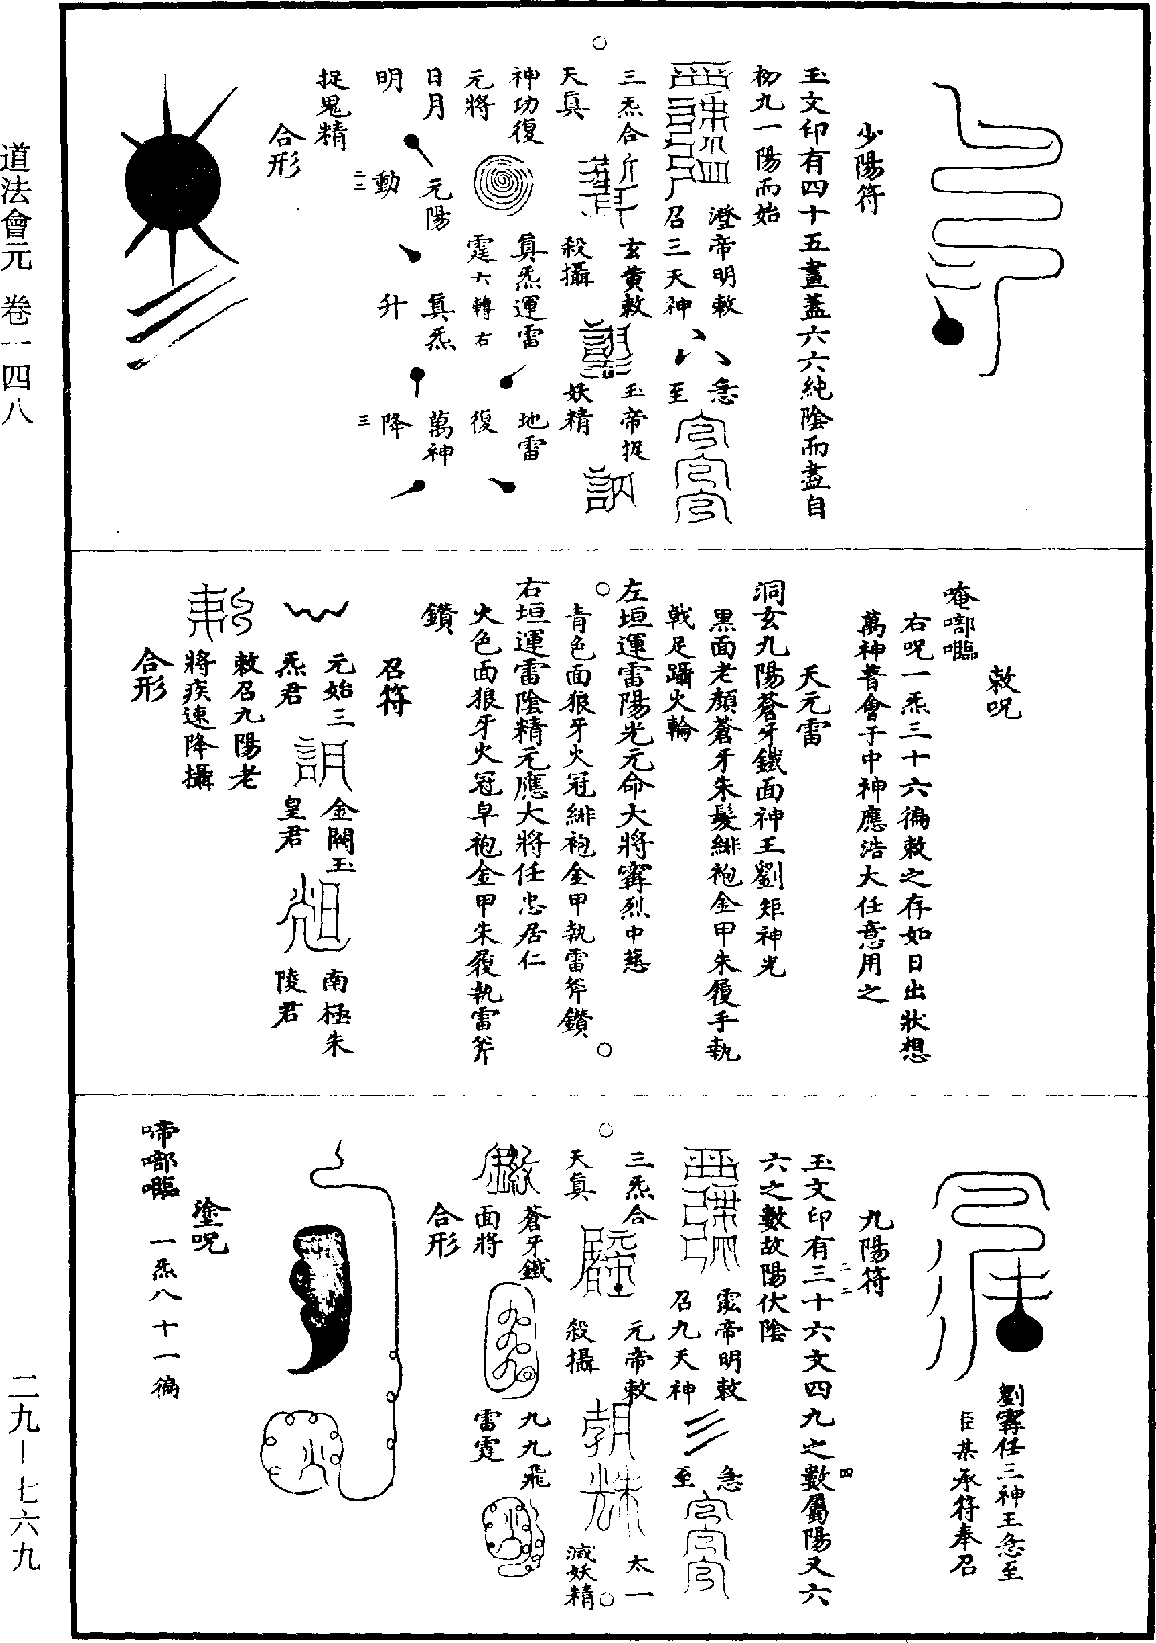 道法會元 卷一四八
二九—七六九
少陽符
玉文印有四十五畫蓋六六純陰而盡自
初九一陽而始
澄帝明敕
急
召三天神
至
三炁合
玄黃敕
玉帝捉
天真
殺攝
妖精
神功復
真炁運雷
地雷
元將
霆大轉右
復
日月
元陽
真炁
萬神
明
動
升
降
捉鬼精
合形
敕呪
唵㖿𡄣
右呪一炁三十六徧敕之存如日出狀想
萬神普會于中神應浩大任意用之
天元雷
洞玄九陽蒼牙鐵面神王劉矩神光
黑面老顏蒼牙朱髮緋袍金甲朱履手執
戟足躡火輪
左垣運雷陽光元命大將甯烈中慈
青色面狼牙火冠緋袍金甲執雷斧鑽
右垣運雷陰精元應大將任忠居仁
火色面狼牙火冠皁袍金甲朱履執雷斧
鑽
召符
元始三
金闕玉
南極朱
炁君
皇君
陵君
敕召九陽老
將疾速降攝
合形
劉甯任三神王急至
臣某承符奉召
九陽符
玉文印有三十六文四九之數屬陽又六
六之數故陽伏陰
雷帝明敕
急
召九天神
至
三炁合
元帝敕
太一
天真
殺攝
滅妖精
蒼牙鐵
九九飛
面將
雷霆
合形
塗呪
啼㖿𡄣 一炁八十一徧